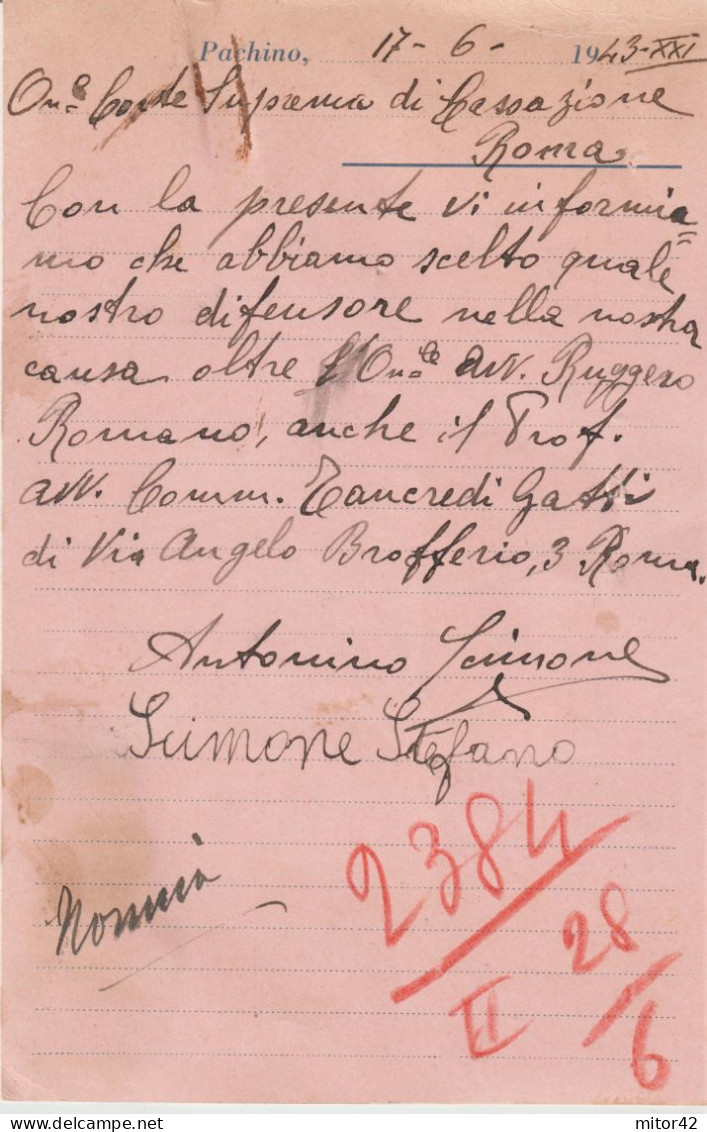 Pachino, 17-6-1943-XXI
On.le Corte Suprema di Cassazione
Roma
Con la presente vi informia=
mo che abbiamo scelto quale
nostro difensore nella nostra
causa oltre l'On.le avv. Ruggero
Romano, anche il Prof.
avv. Comm. Tancredi Gatti
di Via Angelo Brofferio, 3 Roma.
Antonino Scimone
Scimone Stefano
2384
II
28/6
mitor42